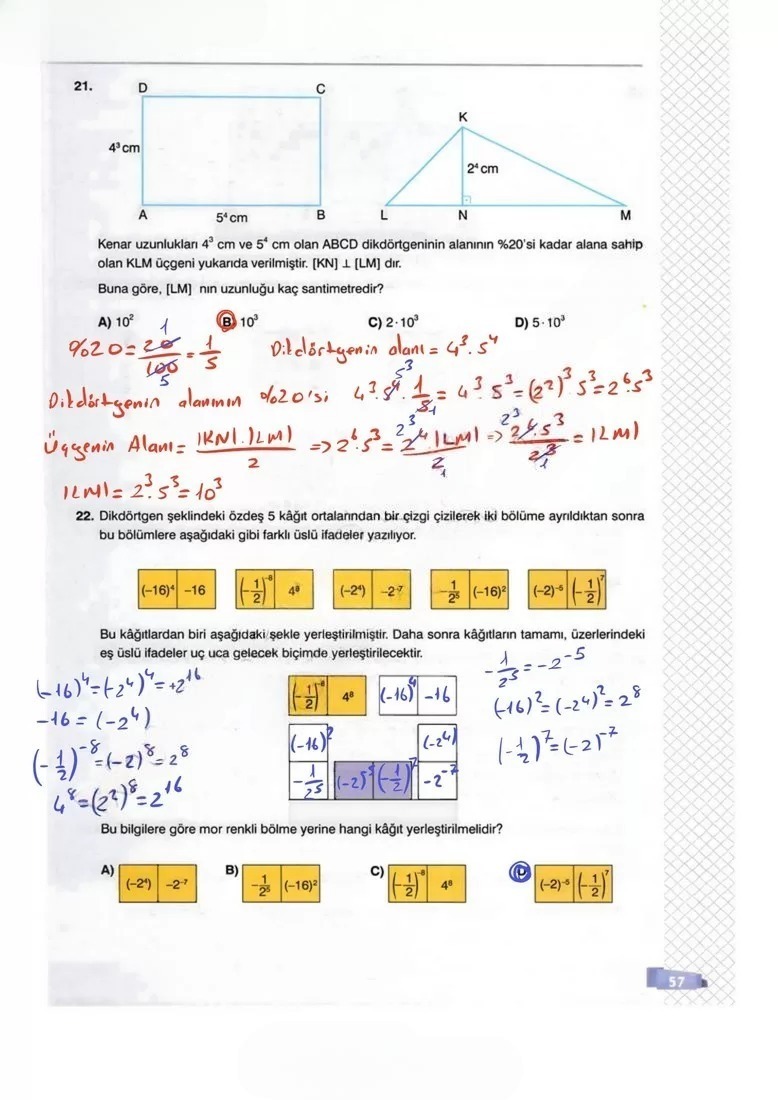 21.
D C
4³ cm
A 5⁴ cm B
K
2⁴ cm
L N M
Kenar uzunlukları 4³ cm ve 5⁴ cm olan ABCD dikdörtgeninin alanının %20'si kadar alana sahip
olan KLM üçgeni yukarıda verilmiştir. [KN] ⊥ [LM] dır.
Buna göre, [LM] nın uzunluğu kaç santimetredir?
A) 10² B) 10³ C) 2·10³ D) 5·10³
%20 = 20/100 = 1/5 Dikdörtgenin alanı = 4³.5⁴
Dikdörtgenin alanının %20'si 4³.5⁴.1/5 = 4³ 5³ = (2²)³ 5³ = 2⁶.5³
Üçgenin Alanı = |KN|.|LM|/2 => 2⁶.5³ = 2⁴.|LM|/2 => 2⁶.5³/2³ = |LM|
|LM| = 2³.5³ = 10³
22. Dikdörtgen şeklindeki özdeş 5 kâğıt ortalarından bir çizgi çizilerek iki bölüme ayrıldıktan sonra
bu bölümlere aşağıdaki gibi farklı üslü ifadeler yazılıyor.
(-16)⁴ -16 (-1/2)⁻⁸ 4⁸ (-2⁴) -2⁻⁷ -1/2⁵ (-16)² (-2)⁻⁵ (-1/2)⁷
Bu kâğıtlardan biri aşağıdaki şekle yerleştirilmiştir. Daha sonra kâğıtların tamamı, üzerlerindeki
eş üslü ifadeler uç uca gelecek biçimde yerleştirilecektir.
(-16)⁴ = (-2⁴)⁴ = +2¹⁶
-16 = (-2⁴)
(-1/2)⁻⁸ = (-2)⁸ = 2⁸
4⁸ = (2²)⁸ = 2¹⁶
(-1/2)⁻⁸ 4⁸ (-16)⁴ -16
(-16)² (-2⁴)
-1/2⁵ (-2)⁻⁵ (-1/2)⁷ -2⁻⁷
-1/2⁵ = -2⁻⁵
(-16)² = (-2⁴)² = 2⁸
(-1/2)⁷ = (-2)⁻⁷
Bu bilgilere göre mor renkli bölme yerine hangi kâğıt yerleştirilmelidir?
A) (-2⁴) -2⁻⁷ B) -1/2⁵ (-16)² C) (-1/2)⁻⁸ 4⁸ D) (-2)⁻⁵ (-1/2)⁷
57